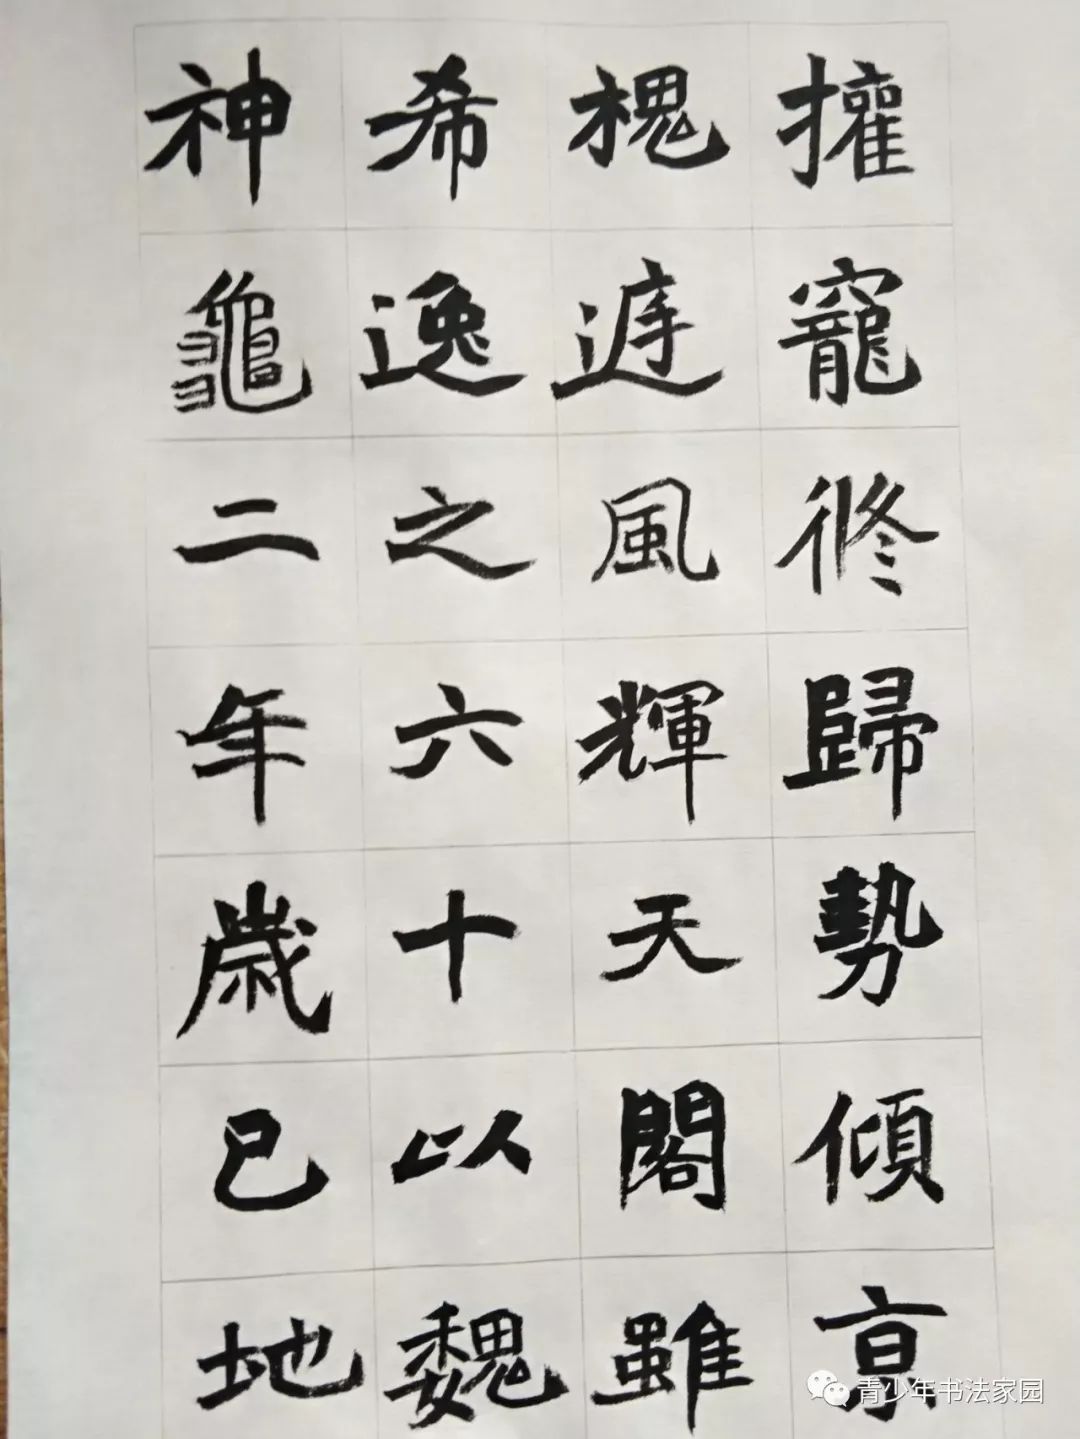 擢寵脩歸勢傾京
槐遊風輝天閣雖
希逸之六十以魏
神龜二年歲己地
青少年书法家园